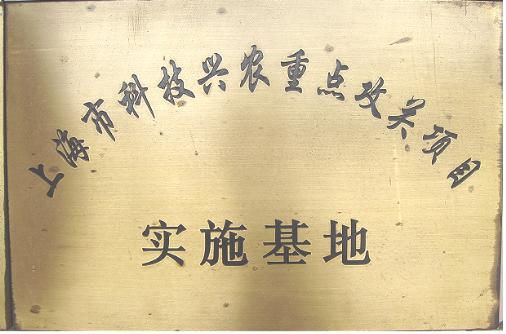 上海市科技兴农重点攻关项目
实施基地